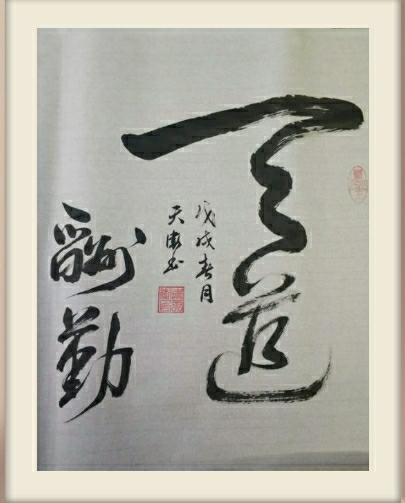 天道
戊戌春月
天 书
酬勤